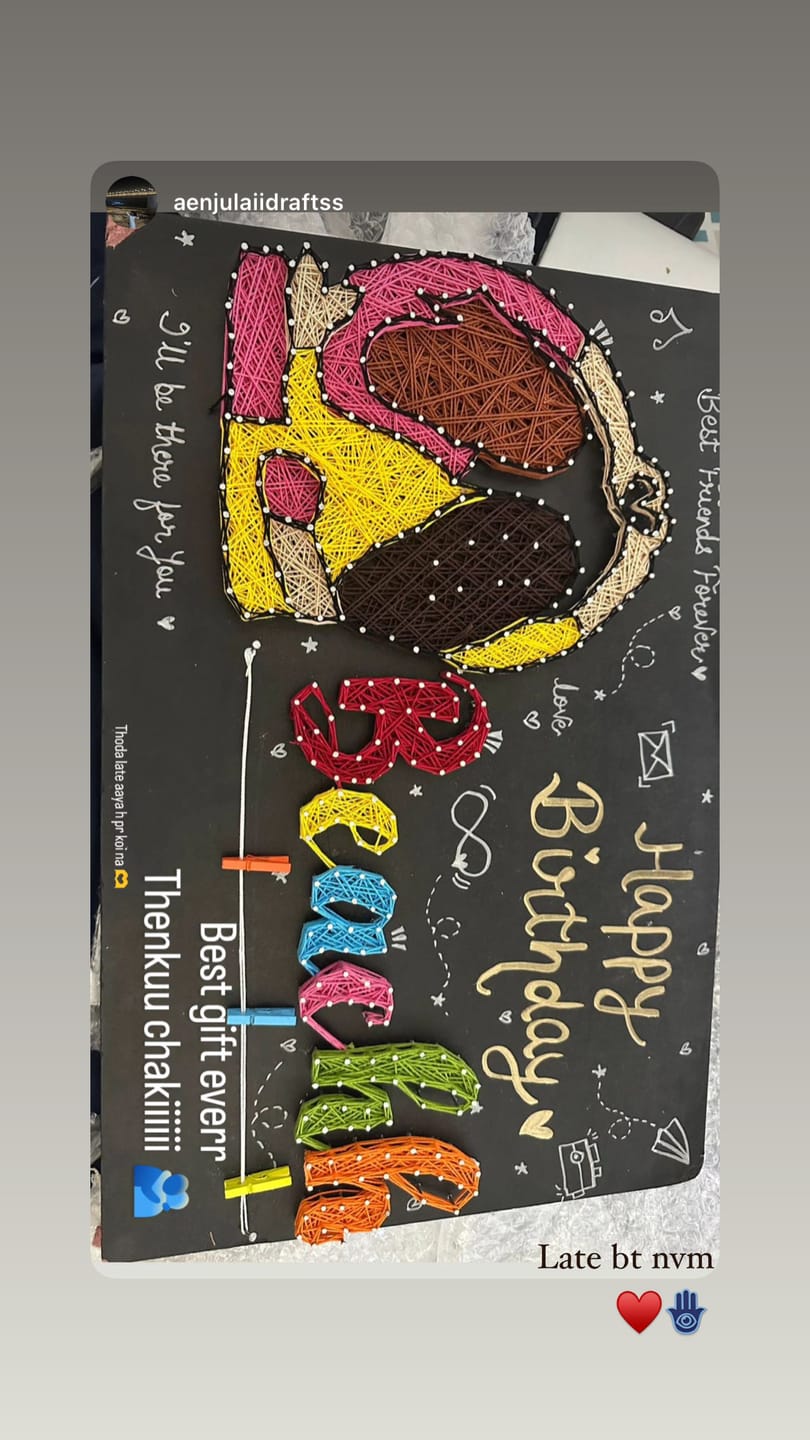 aenjulaiidraftss
Best Friends Forever
Happy
Birthday
love
Beachh
I'll be there for You
Best gift everr
Thenkuu chakiiiiii 🫂
Thoda late aaya h pr koi na 🫶
Late bt nvm
❤️🪬